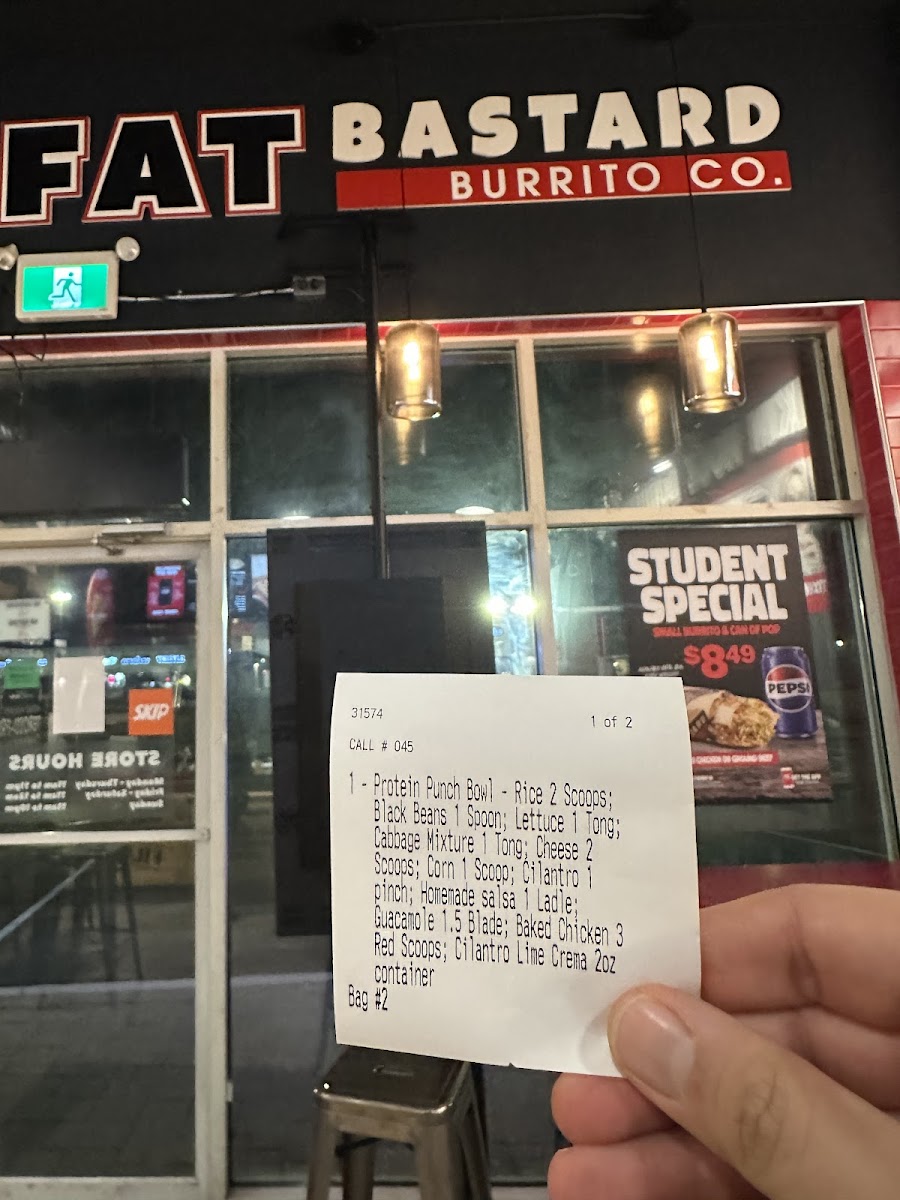 FAT BASTARD
BURRITO CO.
STUDENT
SPECIAL
SMALL BURRITO & CAN OF POP
$8.49
PEPSI
SKIP
STORE HOURS
Monday - Thursday 11am to 11pm
Friday - Saturday
Sunday
31574
1 of 2
CALL # 045
1 - Protein Punch Bowl - Rice 2 Scoops;
Black Beans 1 Spoon; Lettuce 1 Tong;
Cabbage Mixture 1 Tong; Cheese 2
Scoops; Corn 1 Scoop; Cilantro 1
pinch; Homemade salsa 1 Ladle;
Guacamole 1.5 Blade; Baked Chicken 3
Red Scoops; Cilantro Lime Crema 2oz
container
Bag #2